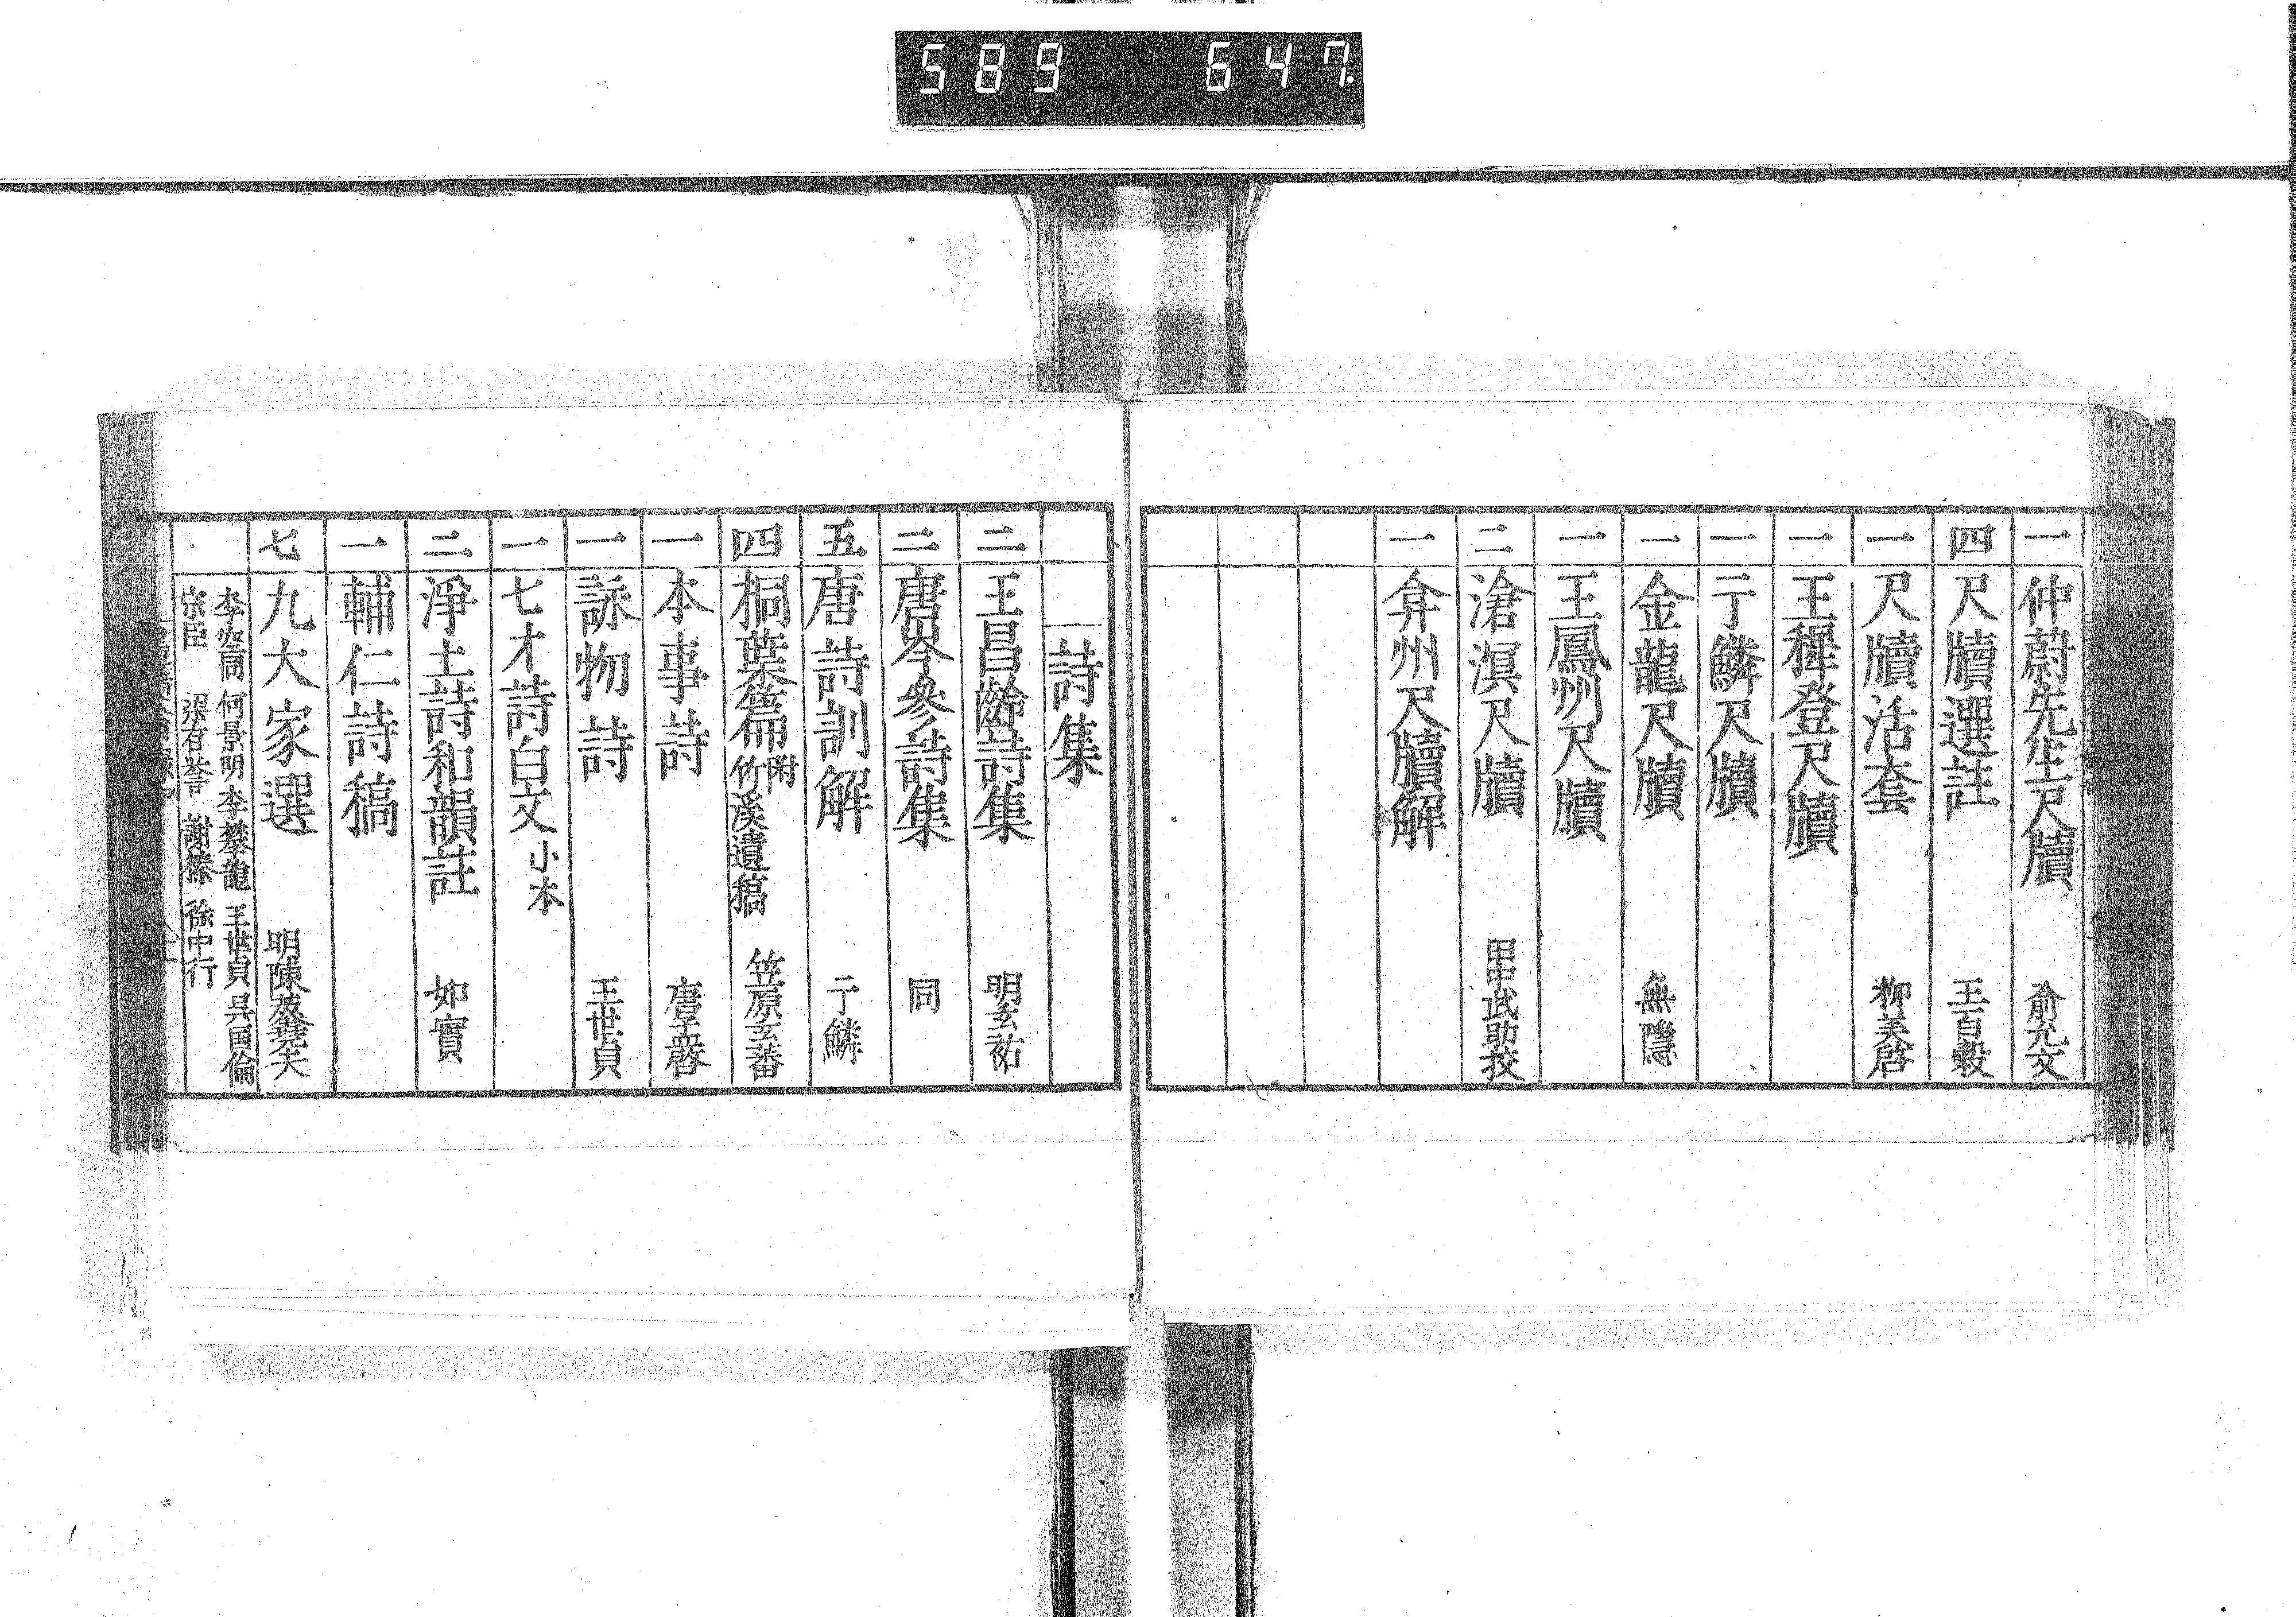 589 647.
一 仲蔚先生尺牘 俞允文
四 尺牘選註 王百穀
一 尺牘活套 柳美啓
一 王穉登尺牘
一 于鱗尺牘
一 金龍尺牘 無隱
一 王鳳州尺牘
二 滄溟尺牘 田中武助挍
一 弇州尺牘解
詩集
二 王昌齡詩集 明玄祐
二 唐岑參詩集 同
五 唐詩訓解 于鱗
四 桐葉篇 附竹溪遺稿 笠原玄蕃
一 本事詩 唐孟啓
一 詠物詩 王世貞
一 七才詩白文 小本
二 淨土詩和韻註 如實
一 輔仁詩稿
七 九大家選 明陳蓂堯夫
李空同 何景明 李攀龍 王世貞 吳国倫
宗臣 梁有誉 謝榛 徐中行